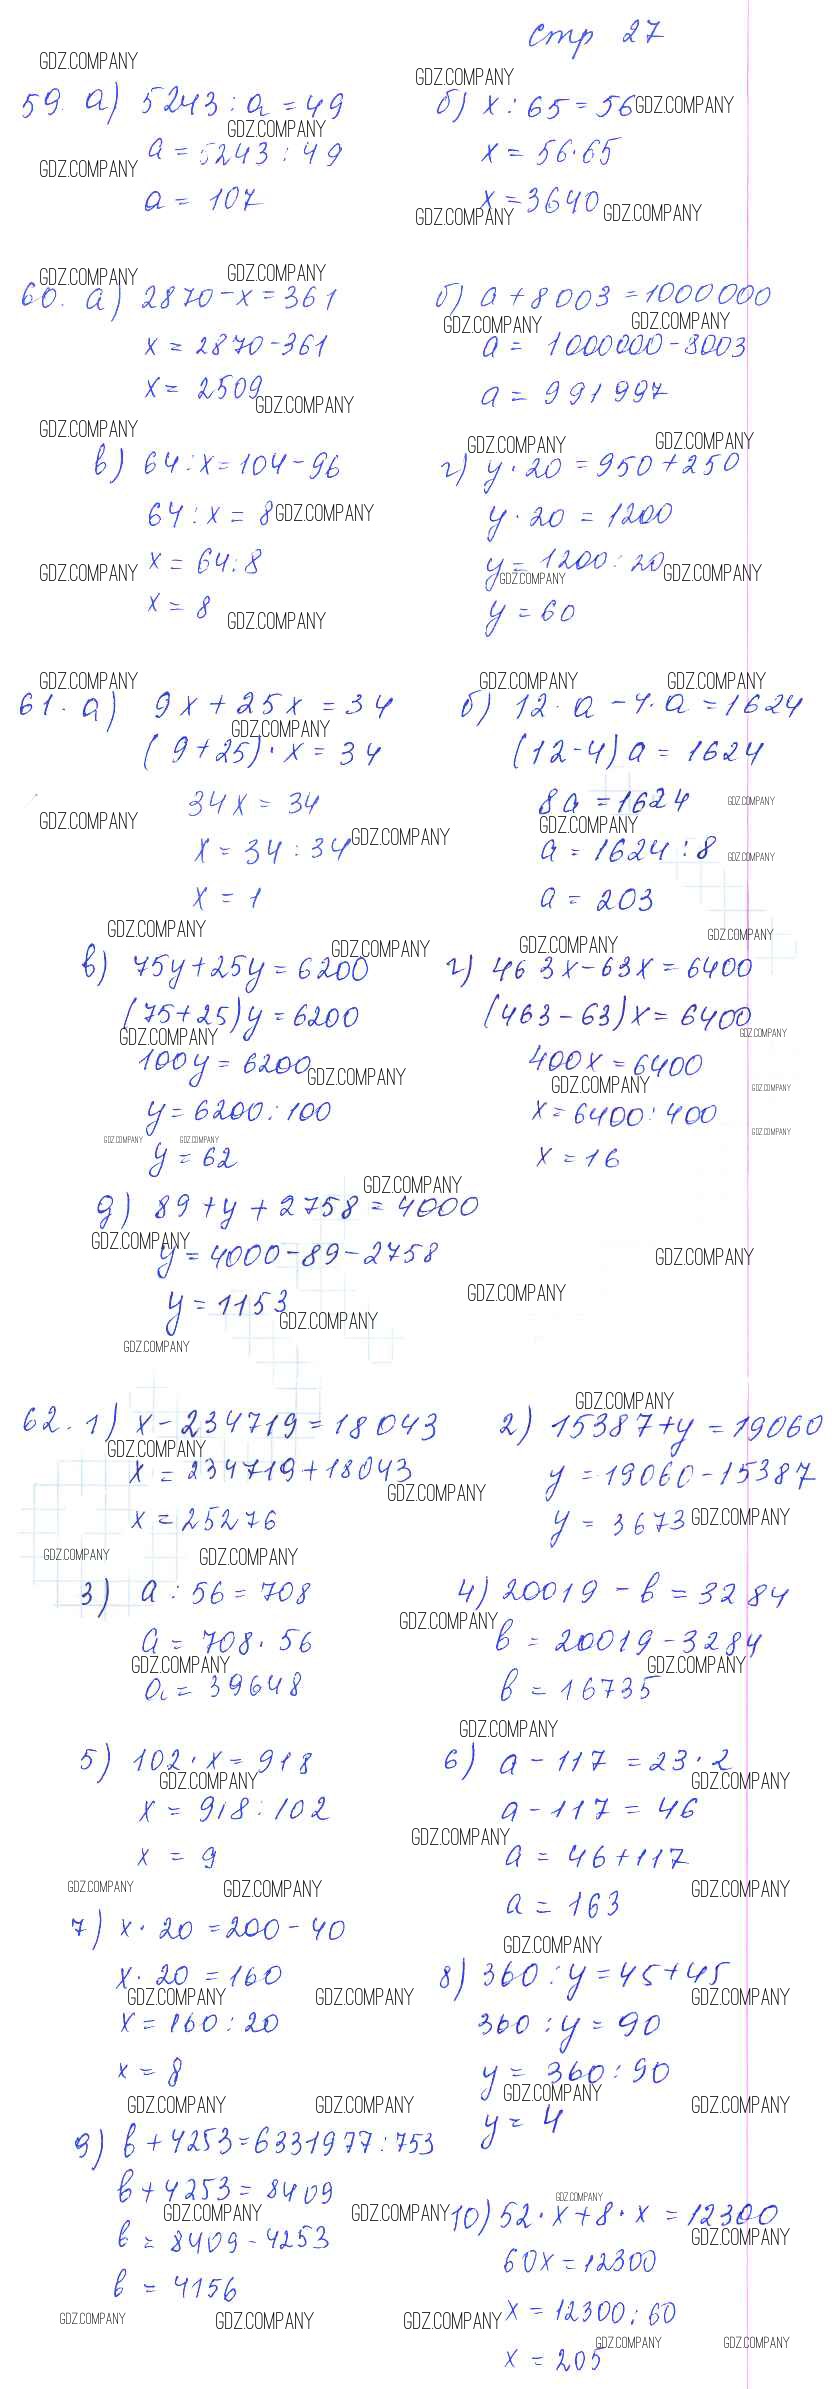 стр 27
59. а) 5243 : а = 49
а = 5243 : 49
а = 107
б) х : 65 = 56
х = 56·65
х = 3640
60. а) 2870 - х = 361
х = 2870 - 361
х = 2509
б) а + 8003 = 1000000
а = 1000000 - 8003
а = 991997
в) 64 : х = 104 - 96
64 : х = 8
х = 64 : 8
х = 8
г) у · 20 = 950 + 250
у · 20 = 1200
у = 1200 : 20
у = 60
61. а) 9х + 25х = 34
(9 + 25) · х = 34
34х = 34
х = 34 : 34
х = 1
б) 12 · а - 4 · а = 1624
(12 - 4) а = 1624
8а = 1624
а = 1624 : 8
а = 203
в) 75у + 25у = 6200
(75 + 25) у = 6200
100у = 6200
у = 6200 : 100
у = 62
г) 463х - 63х = 6400
(463 - 63) х = 6400
400х = 6400
х = 6400 : 400
х = 16
д) 89 + у + 2758 = 4000
у = 4000 - 89 - 2758
у = 1153
62. 1) х - 234719 = 18043
х = 234719 + 18043
х = 25276
2) 15387 + у = 19060
у = 19060 - 15387
у = 3673
3) а : 56 = 708
а = 708 · 56
а = 39648
4) 20019 - в = 3284
в = 20019 - 3284
в = 16735
5) 102 · х = 918
х = 918 : 102
х = 9
6) а - 117 = 23 · 2
а - 117 = 46
а = 46 + 117
а = 163
7) х · 20 = 200 - 40
х · 20 = 160
х = 160 : 20
х = 8
8) 360 : у = 45 + 45
360 : у = 90
у = 360 : 90
у = 4
9) в + 4253 = 6331977 : 753
в + 4253 = 8409
в = 8409 - 4253
в = 4156
10) 52 · х + 8 · х = 12300
60х = 12300
х = 12300 : 60
х = 205
GDZ.COMPANY